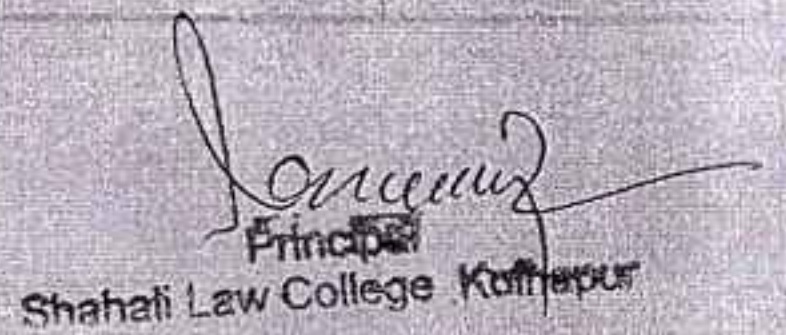 Principal
Shahaji Law College Kolhapur